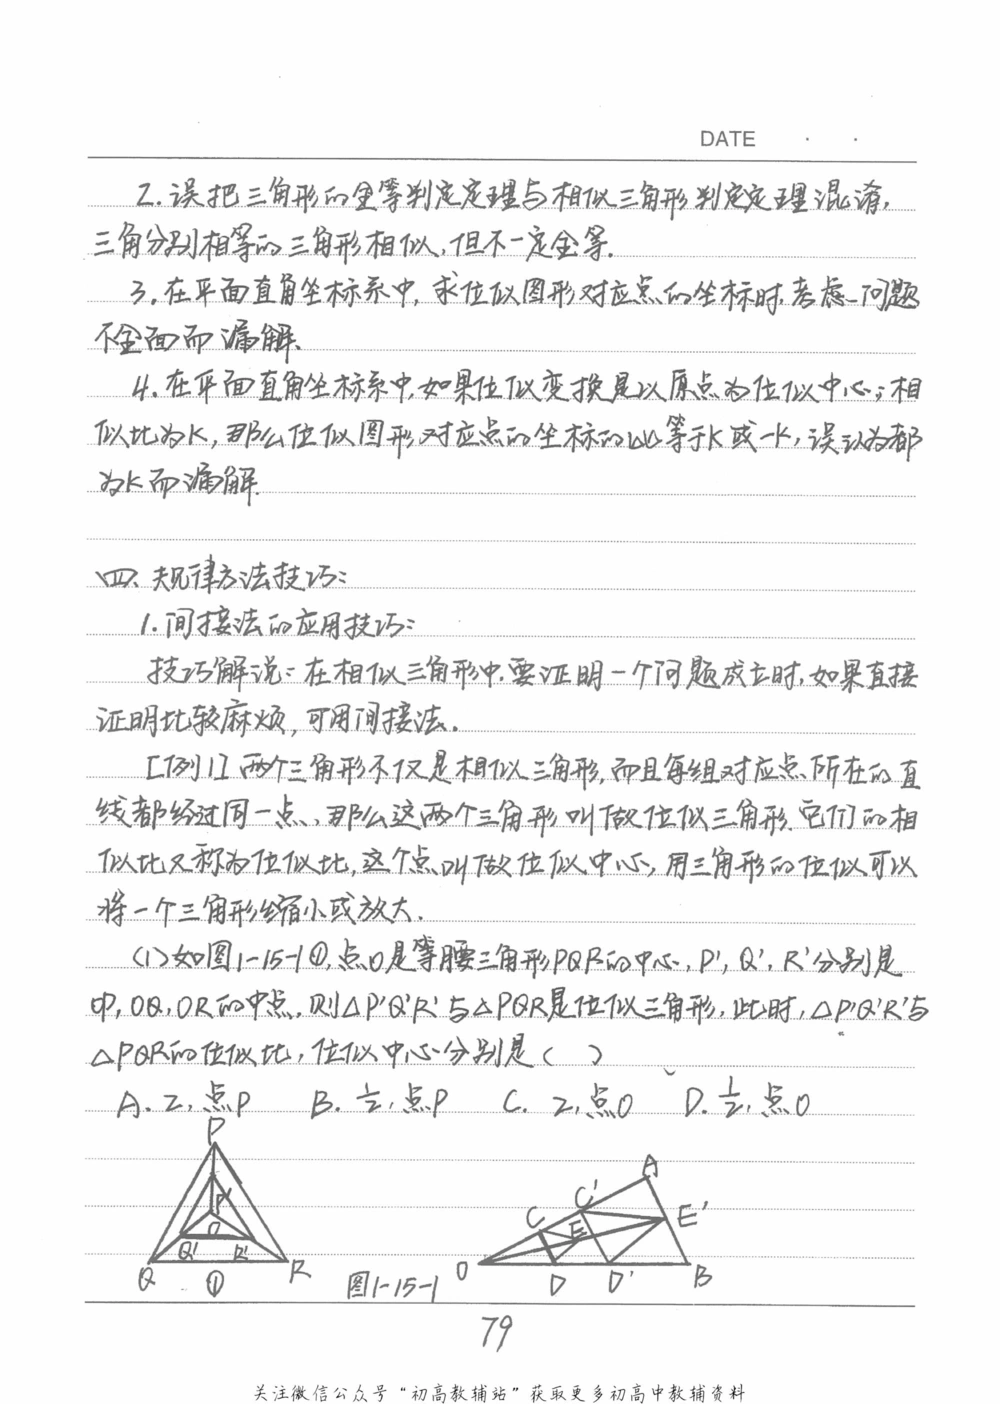 DATE · ·
2.误把三角形的全等判定定理与相似三角形判定定理混淆,
三角分别相等的三角形相似,但不一定全等.
3.在平面直角坐标系中,求位似图形对应点的坐标时,考虑问题
不全面而漏解.
4.在平面直角坐标系中,如果位似变换是以原点为位似中心,相
似比为K,那么位似图形对应点的坐标的比等于K或-K,误认为都
为K而漏解.
四、规律方法技巧:
1.间接法的应用技巧:
技巧解说:在相似三角形中,要证明一个问题成立时,如果直接
证明比较麻烦,可用间接法.
[例1]两个三角形不仅是相似三角形,而且每组对应点所在的直
线都经过同一点,那么这两个三角形叫做位似三角形.它们的相
似比又称为位似比,这个点叫做位似中心,用三角形的位似可以
将一个三角形缩小或放大.
(1)如图1-15-1①,点O是等腰三角形PQR的中心,P',Q',R'分别是
OP,OQ,OR的中点,则△P'Q'R'与△PQR是位似三角形,此时,△P'Q'R'与
△PQR的位似比,位似中心分别是( )
A.2,点P B.½,点P C.2,点O D.½,点O
P
P'
O
Q' R'
Q ① R
图1-15-1
A
C'
C E E'
O D D' B
79
关注微信公众号“初高教辅站”获取更多初高中教辅资料